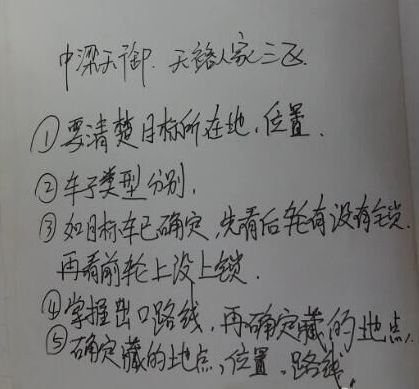 中梁天御. 天裕人家三区.
①要清楚目标所在地、位置.
②车子类型分别,
③如目标车已确定,先看后轮有没有锁.
再看前轮上没上锁.
④掌握出口路线,再确定藏的地点.
⑤确定藏的地点,位置.路线.